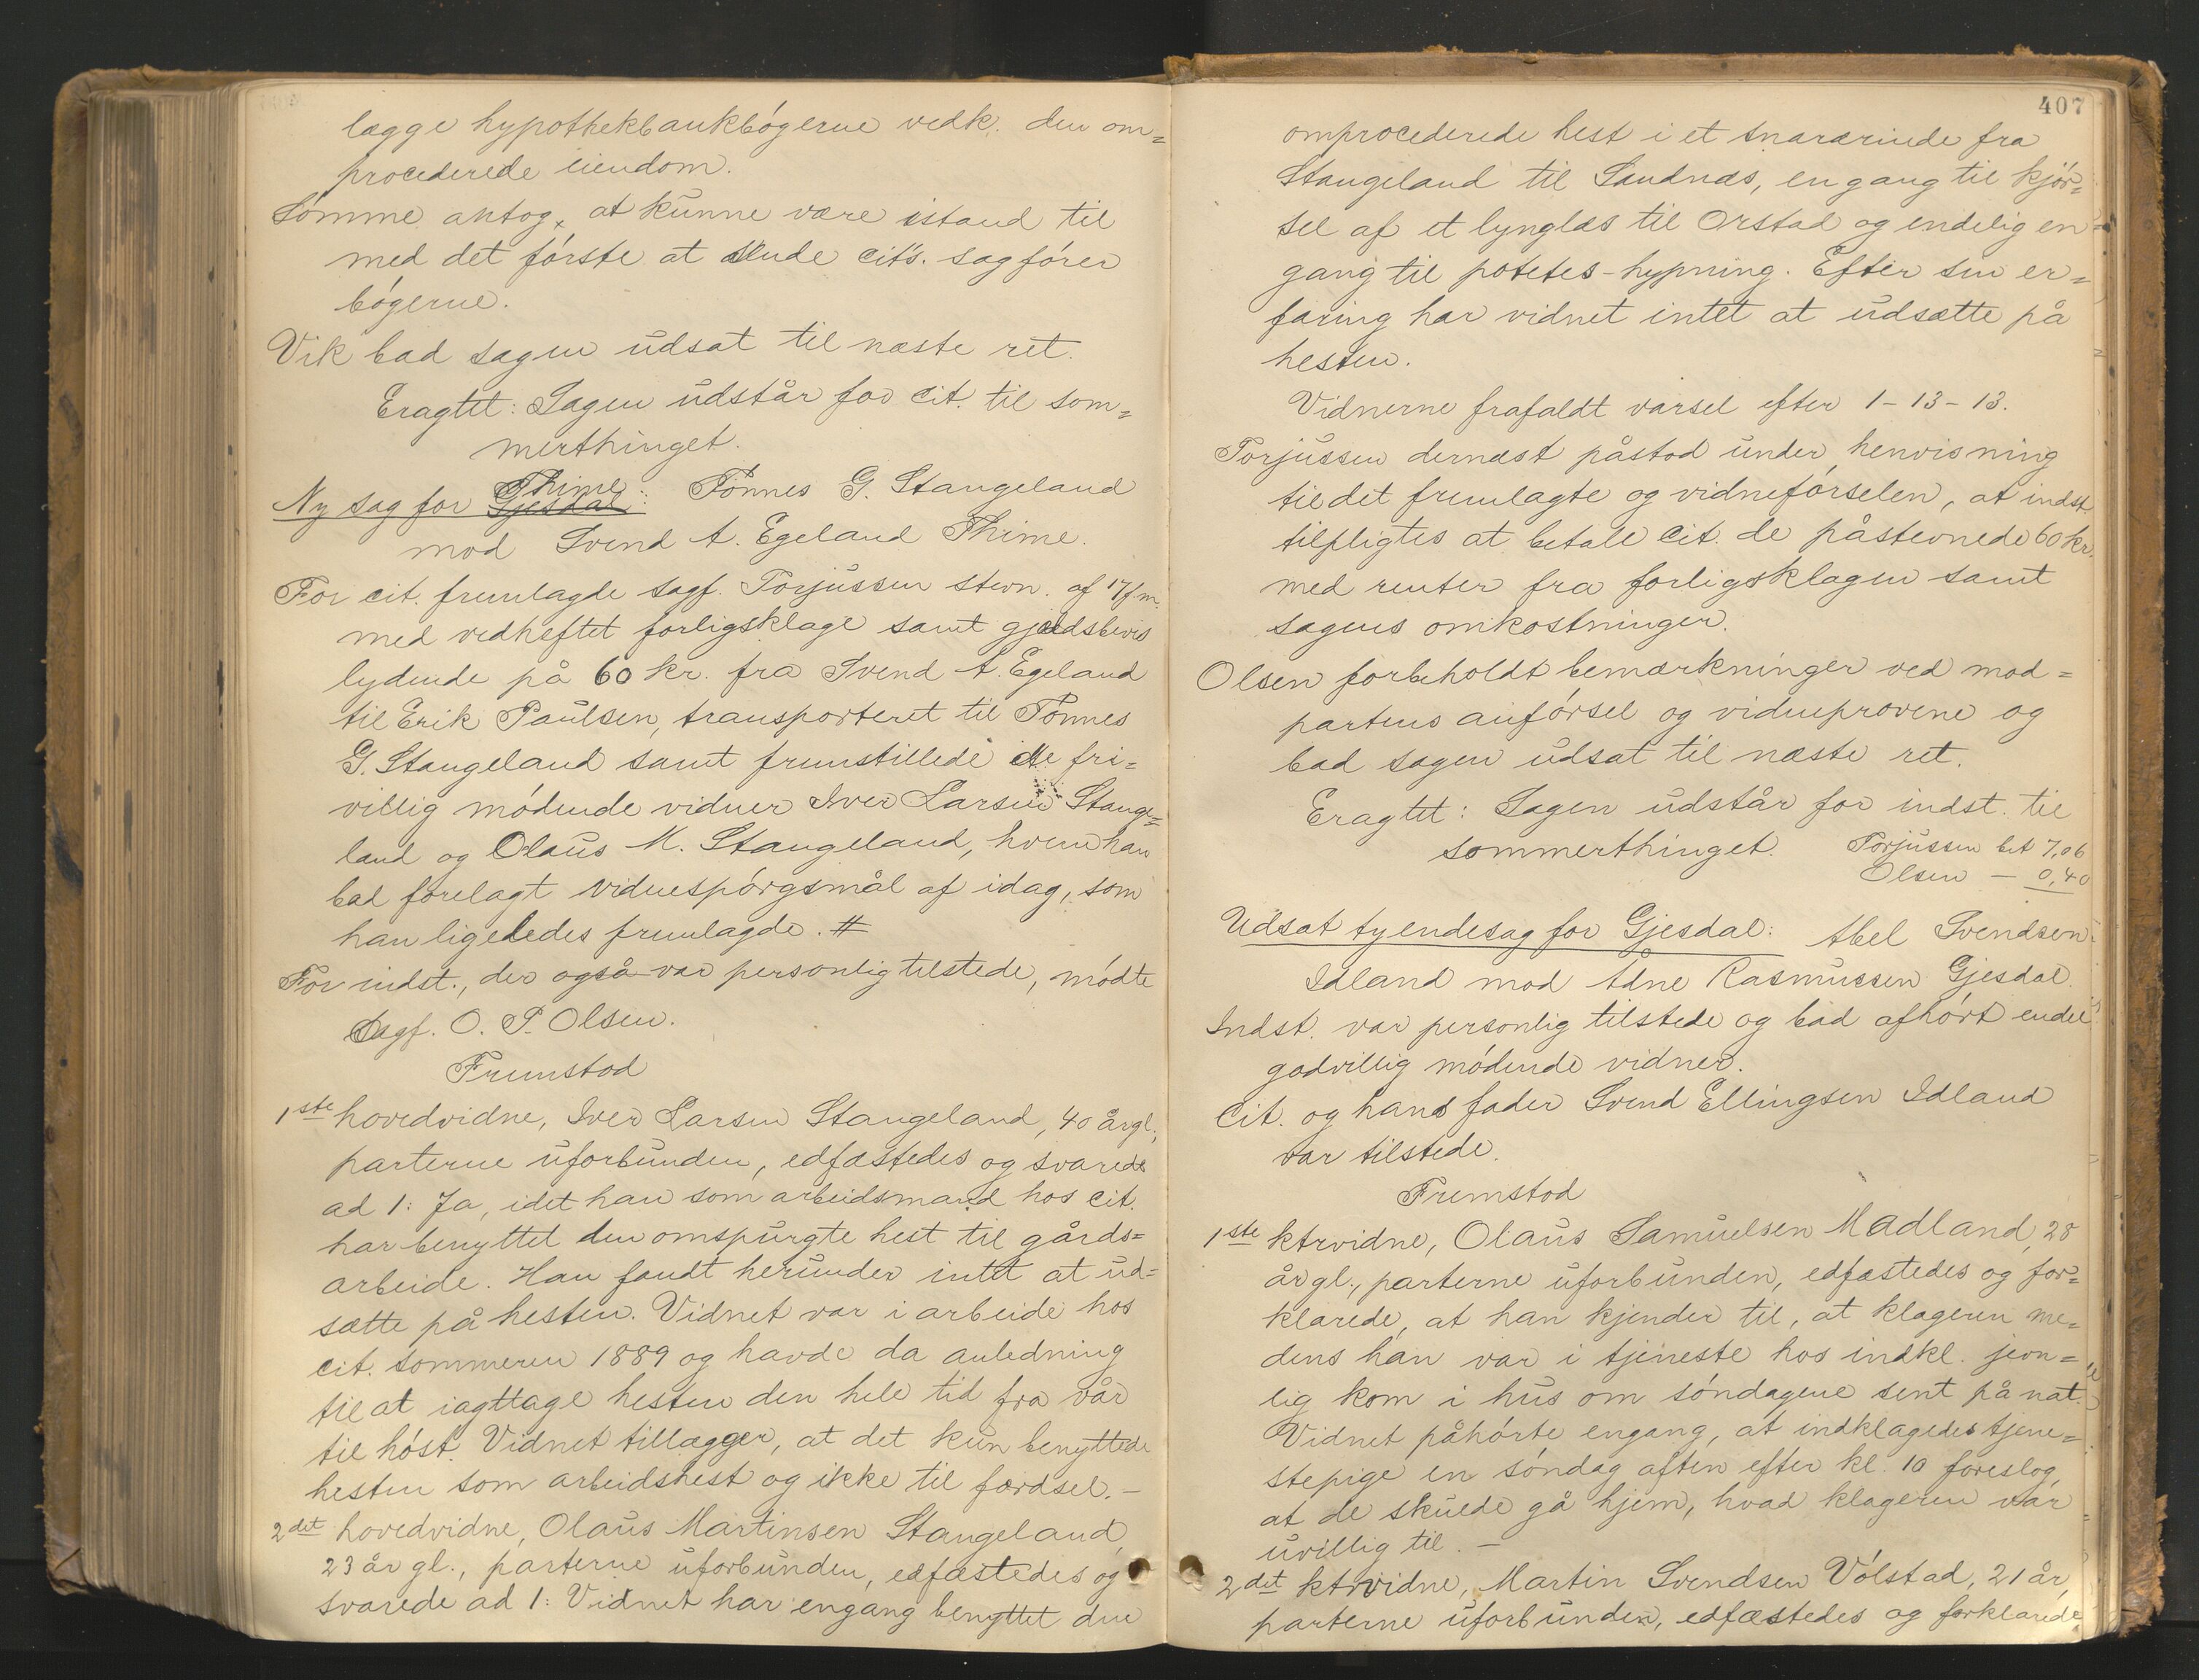 lægge hypothekbankbógerne vedk. den om=
procederede eiendom.
Sømme antog, at kunne være istand til
med det fórste at sende cit's. sagfórer
bógerne.
Vik bad sagen udsat til næste ret.
Eragtet: Sagen udstår for cit. til som=
merthinget.
Ny sag for Gjesdal Thime: Tønnes G. Stangeland
mod Svend A. Egeland Thime.
For cit. fremlagde sagf. Torjussen stevn. af 17/f.m.
med vedheftet forligsklage samt gjældsbevis
lydende på 60 kr. fra Svend A. Egeland
til Erik Paulsen, transporteret til Tønnes
G. Stangeland samt fremstillede de fri=
villig módende vidner Iver Larsen Stange=
land og Olaus M. Stangeland, hvem han
bad forelagt vidnespórgsmål af idag, som
han ligeledes fremlagde. #
For indst., der også var personlig tilstede, módte
Sagf. O. P. Olsen.
Fremstod
1ste hovedvidne, Iver Larsen Stangeland, 40 årgl.,
parterne uforbunden, edfæstedes og svarede
ad 1: Ja, idet han som arbeidsmand hos cit.
har benyttet den omspurgte hest til gårds=
arbeide. Han fandt herunder intet at ud=
sætte på hesten. Vidnet var i arbeide hos
cit. sommeren 1889 og havde da anledning
til at iagttage hesten den hele tid fra vår
til hóst. Vidnet tillægger, at det kun benyttede
hesten som arbeidshest og ikke til færdsel. –
2det hovedvidne, Olaus Martinsen Stangeland,
23 år gl., parterne uforbunden, edfæstedes og
svarede ad 1: Vidnet har engang benyttet den
407
omprocederede hest i et snarærinde fra
Stangeland til Sandnæs, en gang til kjör=
sel af et lynglæs til Orstad og endelig en=
gang til potetes-hypning. Efter sin er=
faring har vidnet intet at udsætte på
hesten.
Vidnerne frafaldt varsel efter 1-13-13.
Torjussen dernæst påstod under henvisning
til det fremlagte og vidnefórselen, at indst.
tilpligtes at betale cit. de påstevnede 60 kr.
med renter fra forligsklagen samt
sagens omkostninger.
Olsen forbeholdt bemærkninger ved mod=
partens anfórsel og vidneprovene og
bad sagen udsat til næste ret.
Eragtet: Sagen udstår for indst. til
sommerthinget. Torjussen bet 7,06
Olsen – 0,40
Udsat tyendesag for Gjesdal: Abel Svendsen
Idland mod Adne Rasmussen Gjesdal.
Indst. var personlig tilstede og bad afhórt endel
godvillig módende vidner.
Cit. og hans fader Svend Ellingsen Idland
var tilstede.
Fremstod
1ste ktrvidne, Olaus Samuelsen Madland, 28
år gl., parterne uforbunden, edfæstedes og for=
klarede, at han kjender til, at klageren me=
dens han var i tjeneste hos indkl. jevn=
lig kom i hus om sóndagene sent på nat.
Vidnet påhórte engang, at indklagedes tjene=
stepige en sóndag aften efter kl. 10 foreslog,
at de skulde gå hjem, hvad klageren var
uvillig til. –
2det ktrvidne, Martin Svendsen Vólstad, 21 år,
parterne uforbunden, edfæstedes og forklarede